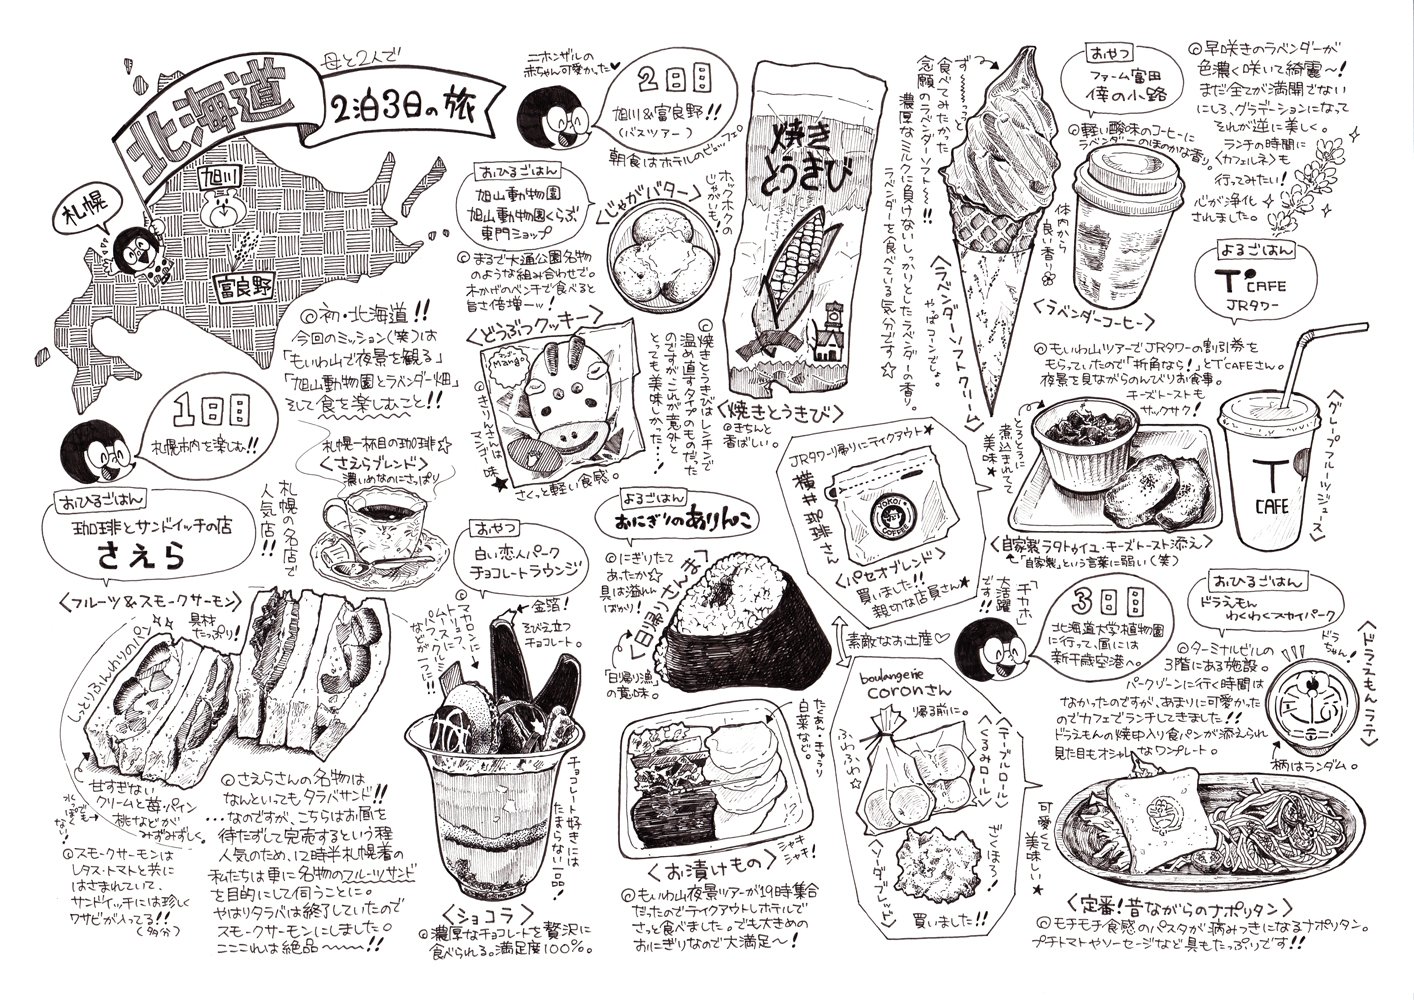 母と2人で
北海道
2泊3日の旅
札幌
旭川
富良野
◎初・北海道!!
今回のミッション(笑)は
「もいわ山で夜景を観る」
「旭山動物園とラベンダー畑」
そして食を楽しむこと!!
1日目
札幌市内を楽しむ!!
おひるごはん
珈琲とサンドイッチの店
さえら
札幌一杯目の珈琲☆
<さえらブレンド>
濃いめなのにさっぱり
札幌の名店で
人気店!!
<フルーツ&スモークサーモン>
具材
たっぷり!
しっとりふんわりのパン
甘すぎない
クリームと苺・パイン
桃などが
みずみずしく。
水っぽく
ない!
◎スモークサーモンは
レタス・トマトと共に
はさまれていて、
サンドイッチには珍しく
ワサビが入ってる!!
(多分)
◎さえらさんの名物は
なんといってもタラバサンド!!
…なのですが、こちらはお皿を
待たずして完売するという程
人気のため、12時半札幌着の
私たちは更に名物のフルーツサンド
を目的にして伺うことに。
やはりタラバは終了していたので
スモークサーモンにしました。
こここれは絶品~~~!!
おやつ
白い恋人パーク
チョコレートラウンジ
金箔!
そびえ立つ
チョコレート。
マカロンに
トリュフに
ムースに
パフクリーム
などが一つに!!
チョコレート好きには
たまらない一品!
<ショコラ>
◎濃厚なチョコレートを贅沢に
食べられる。満足度100%。
ニホンザルの
赤ちゃん可愛かった♥
2日目
旭川&富良野!!
(バスツアー)
朝食はホテルのビュッフェ
おひるごはん
旭山動物園
旭山動物園くらぶ
東門ショップ
◎まるで大通公園名物
のような組み合わせで。
木かげのベンチで食べると
旨さ倍増ーッ!
<じゃがバター>
ホックホクの
じゃがいも!
<どうぶつクッキー>
Mango
◎きりんさんは
マンゴー味
さくっと軽い食感。
焼き
とうきび
<焼きとうきび>
◎きちんと
香ばしい。
◎焼きとうきびはレンチンで
温め直すタイプのものだった
のですが、これが意外と
とっても美味しかった…!
ず~~~っと
食べてみたかった
念願のラベンダーソフト~~!!
濃厚なミルクに負けないしっかりとしたラベンダーの香り。
ラベンダーを食べている気分です☆
やっぱコーンでしょ。
<ラベンダーソフトクリーム>
おやつ
ファーム富田
倖の小路
◎軽い酸味のコーヒーに
ラベンダーのほのかな香り。
体内から
良い香り
<ラベンダーコーヒー>
◎早咲きのラベンダーが
色濃く咲いて綺麗~!
まだ全てが満開でない
にしろ、グラデーションになって
それが逆に美しく。
ランチの時間に
<カフェルネ>も
行ってみたい!
心が浄化
されました。
よるごはん
T'CAFE
JRタワー
◎もいわ山ツアーでJRタワーの割引券を
もらっていたので「折角なら!」とT'CAFEさん。
夜景を見ながらのんびりお食事。
チーズトーストも
サックサク!
とろとろに
煮込まれてて
美味★
<自家製ラタトゥイユ・チーズトースト添え>
「自家製」という言葉に弱い(笑)
T
CAFE
<グレープフルーツジュース>
よるごはん
おにぎりのありんこ
◎にぎりたて
あったか☆
具は溢れん
ばかり!
<日帰り漁さん>
「日帰り漁」
の意味。
たくあん・きゅうり
白菜など。
シャキ
シャキ!
<お漬けもの>
◎もいわ山夜景ツアーが19時集合
だったのでテイクアウトしホテルで
さっと食べました。でも大きめの
おにぎりなので大満足~!
JRタワー帰りにテイクアウト★
横井珈琲さん
YOKOI
COFFEE
<パセオブレンド>
買いました!!
親切な店員さん★
素敵なお土産♡
boulangerie
coronさん
帰る前に。
ふわふわ☆
<テーブルロール>
<くるみロール>
ざくほろ!
<ソーダブレッド>
買いました!!
「チカホ」
大活躍
です!!
3日目
北海道大学植物園
に行って、直には
新千歳空港へ。
おひるごはん
ドラえもん
わくわくスカイパーク
◎ターミナルビルの
3階にある施設。
パークゾーンに行く時間は
なかったのですが、あまりに可愛かった
のでカフェでランチしてきました!!
ドラえもんの焼印入り食パンが添えられ
見た目もオシャレなワンプレート。
ドラ
ちゃん!
<ドラえもんラテ>
柄はランダム。
可愛くて
美味しい★
<定番!昔ながらのナポリタン>
◎モチモチ食感のパスタが病みつきになるナポリタン。
プチトマトやソーセージなど具もたっぷりです!!